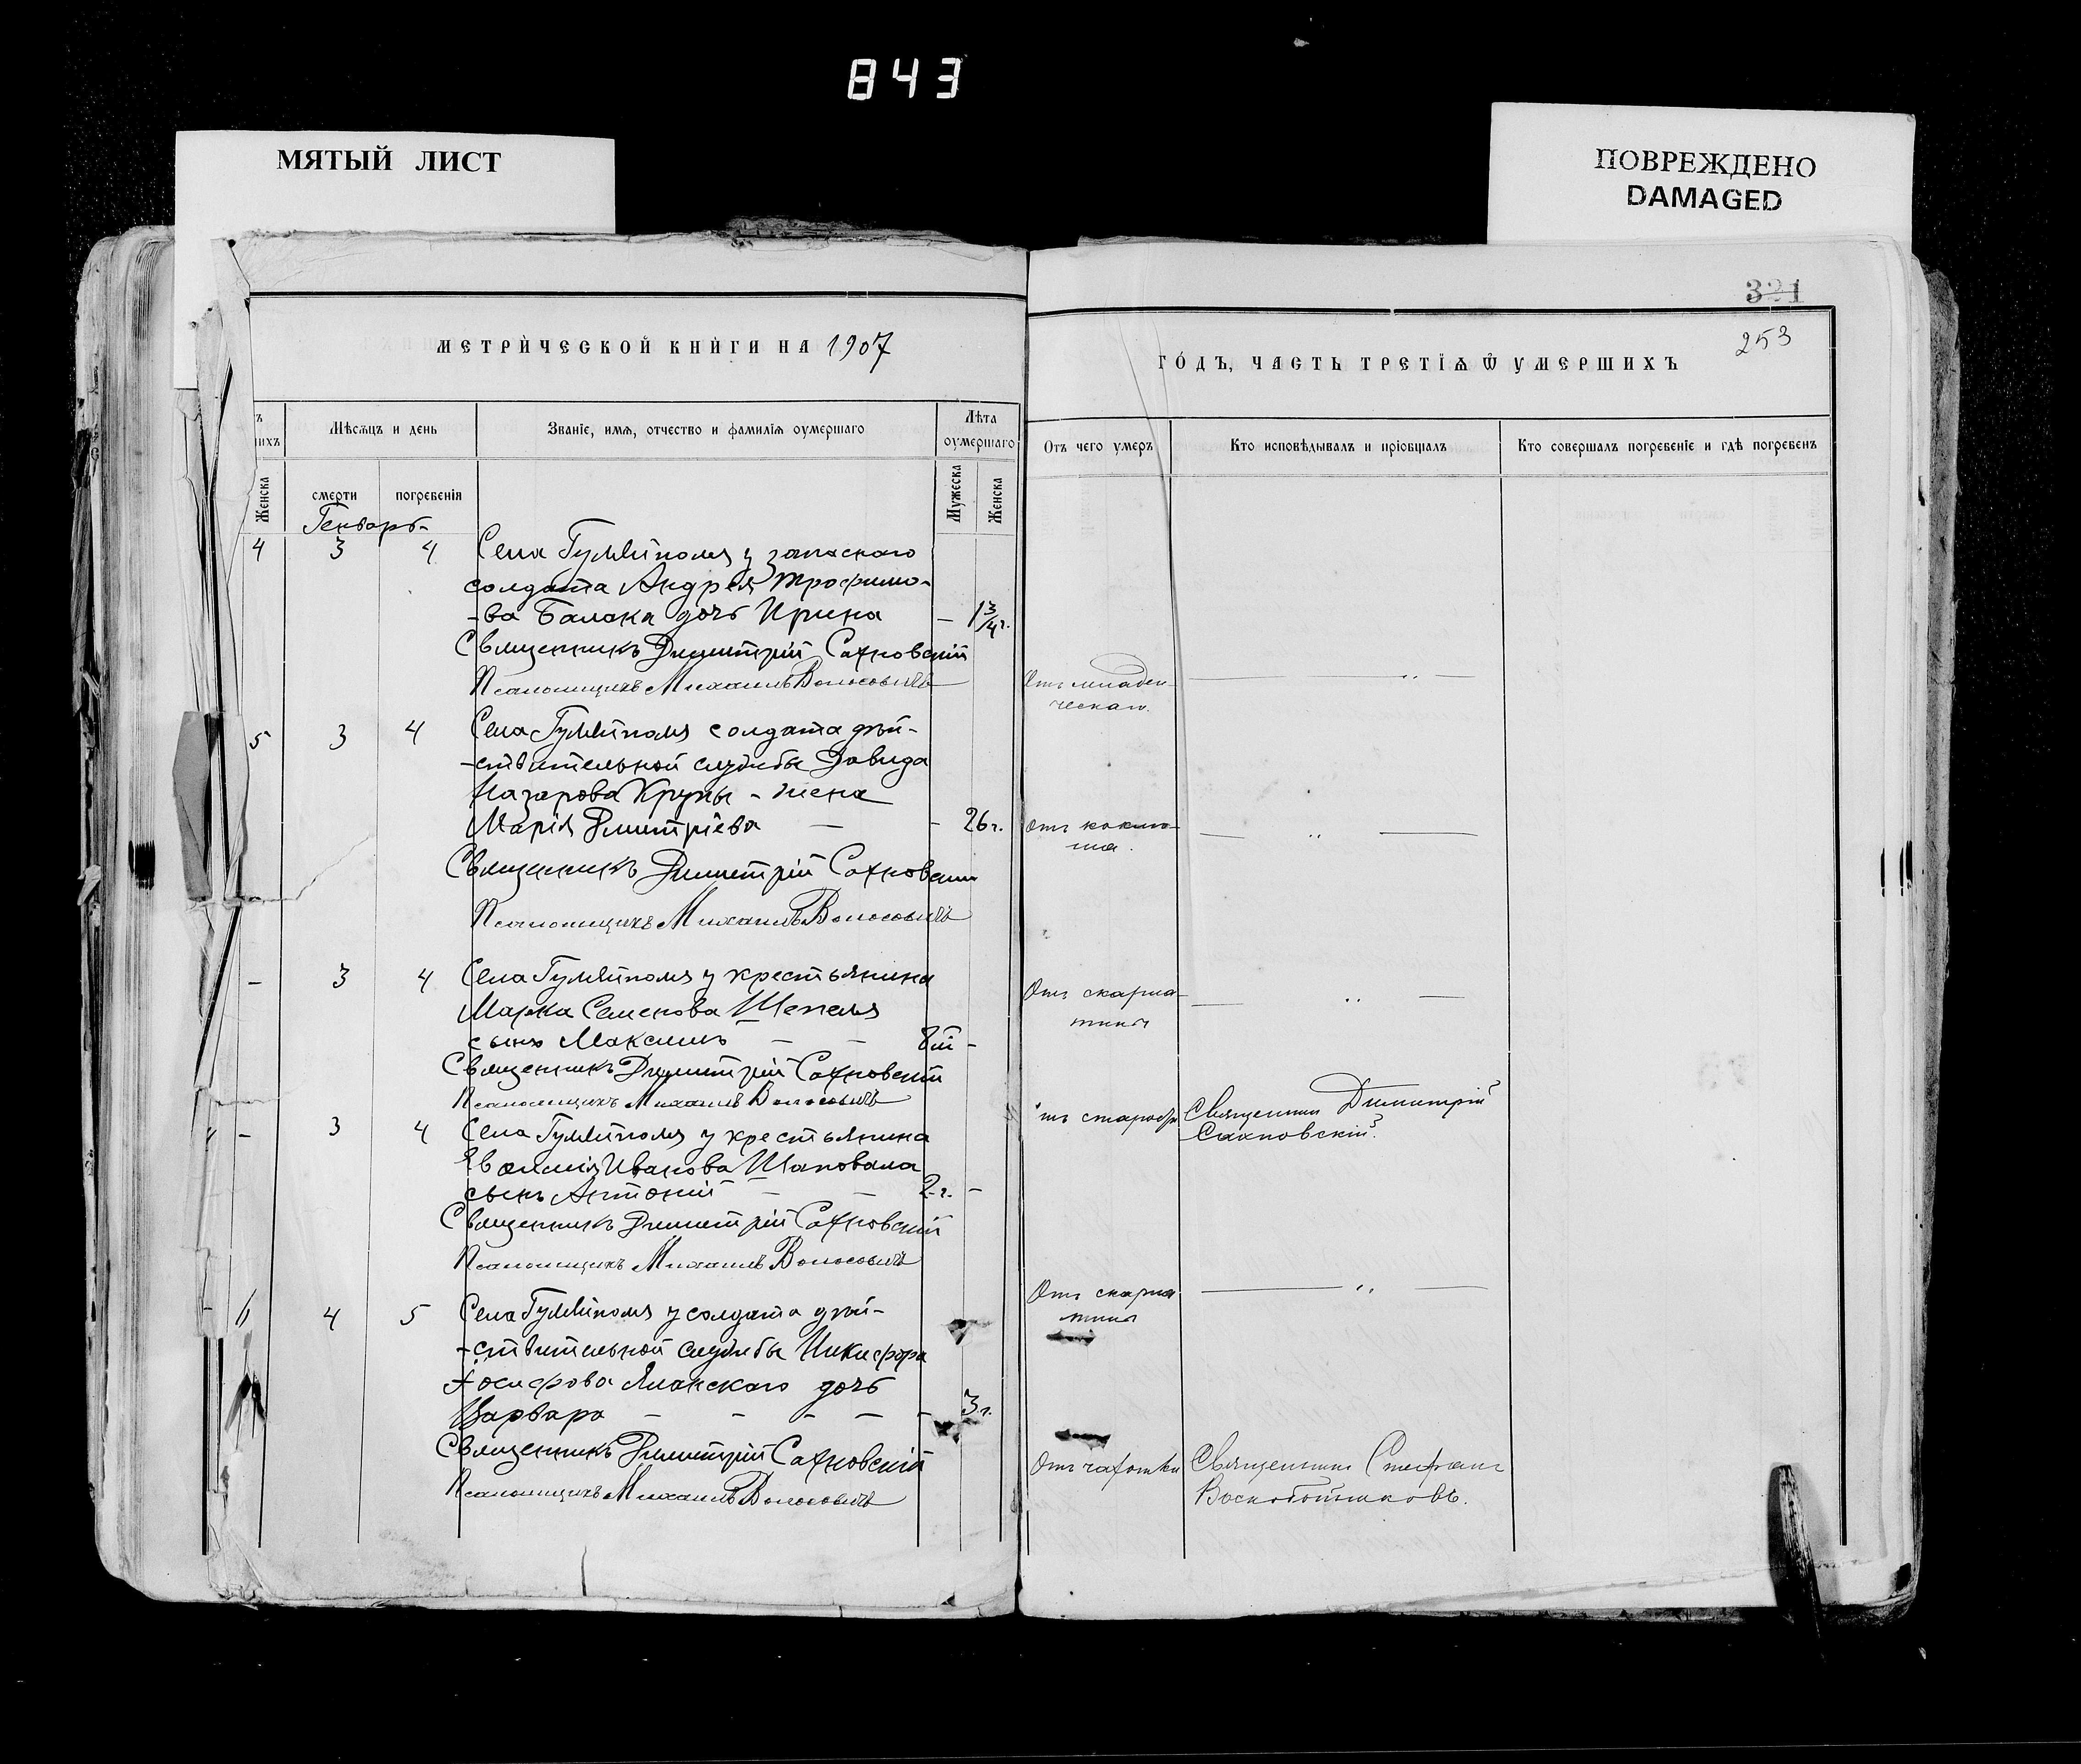 843
МЯТЫЙ ЛИСТ
ПОВРЕЖДЕНО
DAMAGED
321
253
МЕТРИЧЕСКОЙ КНИГИ НА 1907
ГОДЪ, ЧАСТЬ ТРЕТІѦ Ѿ УМЕРШИХЪ
Мѣсѧцъ и день
Званіе, имѧ, отчество и фамиліѧ оумершаго
Лѣта оумершаго
Отъ чего умеръ
Кто исповѣдывалъ и пріобщалъ
Кто совершалъ погребеніе и гдѣ погребенъ
Женска
смерти
погребенія
Мужеска
Женска
Генварь
4 3 4 Села Гуляйполя у запаснаго
солдата Андрея Трофимо-
-ва Балака дочь Ирина — 1 3/4 г.
Священникъ Димитрій Сахновскій
Псаломщикъ Михаилъ Волосовичъ
Отъ младен-
ческаго.
5 3 4 Села Гуляйполя солдата дѣй-
-ствительной службы Давида
Назарова Крупы - жена
Марія Димитріева — - 26 г.
Священникъ Димитрій Сахновскій
Псаломщикъ Михаилъ Волосовичъ
- 3 4 Села Гуляйполя у крестьянина
Марка Семенова Шепеля
сынъ Максимъ — —
Священникъ Димитрій Сахновскій
Псаломщикъ Михаилъ Волосовичъ
Отъ скарла-
тины
- 3 4 Села Гуляйполя у крестьянина
Евфимія Иванова Шаповала
сынъ Антоній — — 2 г. -
Священникъ Димитрій Сахновскій
Псаломщикъ Михаилъ Волосовичъ
Священникъ Димитрій
Сахновскій.
6 4 5 Села Гуляйполя у солдата дѣй-
-ствительной службы Никифора
Іосифова Яланскаго дочь
Варвара — - - — - 3 г.
Священникъ Димитрій Сахновскій
Псаломщикъ Михаилъ Волосовичъ
Отъ скарла
тины
Отъ чахотки
Священникъ Стефанъ
Воскобойниковъ.